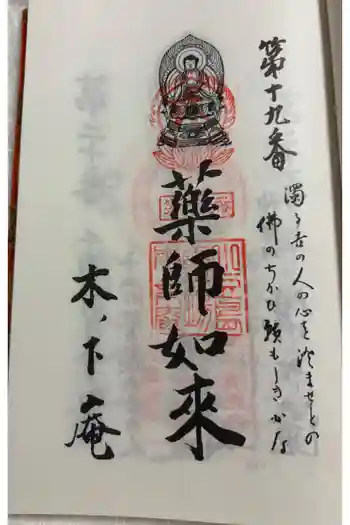 第十九番
濁る世の人の心を澄ませとの
佛のちかひ頼もしきかな
薬師如來
木ノ下庵